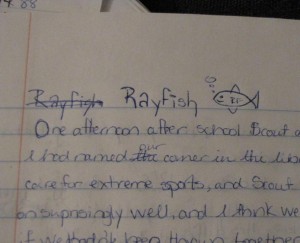 88
Rayfish Rayfish
One afternoon after school Scout a
I had named our corner in the libr
care for extreme sports, and Scout
surprisingly well, and I think we